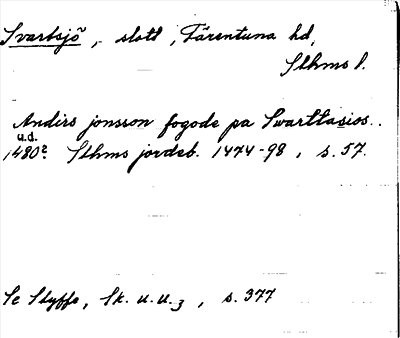 Svartsjö, slott, Färentuna hd,
Sthms l.
Anders jonsson fogode pa Swarttasios..
u.d.
1480? Sthms jordeb. 1474-98, s. 57.
Se Styffe, Sk. u. u. 3, s. 377